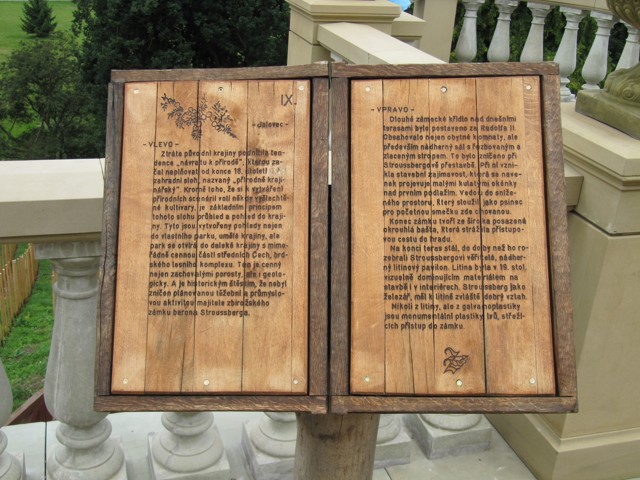 IX.
- Jalovec -
- VLEVO -
Ztráta původní krajiny podnítila ten-
dence „návratu k přírodě", kterou za-
čal naplňovat od konce 18. století
zahradní sloh, nazvaný „přírodně kraji-
nářský". Kromě toho, že si k vytváření
přírodních scenérií volí někdy vyšlechtě-
né kultivary, je základním principem
tohoto slohu průhled a pohled do kraji-
ny. Tyto jsou vytvořeny pohledy nejen
do vlastního parku, umělé krajiny, ale
park se otvírá do daleké krajiny s mimo-
řádně cennou částí středních Čech, brd-
ského lesního komplexu. Ten je cenný
nejen zachovalými porosty, ale i geolo-
gicky. A je historickým štěstím, že nebyl
zničen plánovanou těžební a průmyslo-
vou aktivitou majitele zbirožského
zámku barona Strousberga.
- VPRAVO -
Dlouhé zámecké křídlo nad dnešními
terasami bylo postaveno za Rudolfa II.
Obsahovalo nejen obytné komnaty, ale
především nádherný sál s řezbovaným a
zlaceným stropem. To bylo zničeno při
Stroussbergově přestavbě. Při ní vzni-
kla stavební zajímavost, která se nave-
nek projevuje malými kulatými okénky
nad prvním podlažím. Vedou do sníže-
ného prostoru, který sloužil, jako psinec
pro početnou smečku zde chovanou.
Konec zámku tvoří ze široka posazená
okrouhlá bašta, která strážila přístupo-
vou cestu do hradu.
Na konci teras stál, do doby než ho ro-
zebrali Stroussbergovi věřitelé, nádher-
ný litinový pavilon. Litina byla v 19. stol.
vizuelně dominujícím materiálem na
stavbě i v interiérech. Stroussberg jako
železář, měl k litině zvláště dobrý vztah.
Nikoli z litiny, ale z galvanoplastiky
jsou monumentální plastiky lvů, střeží-
cích přístup do zámku.